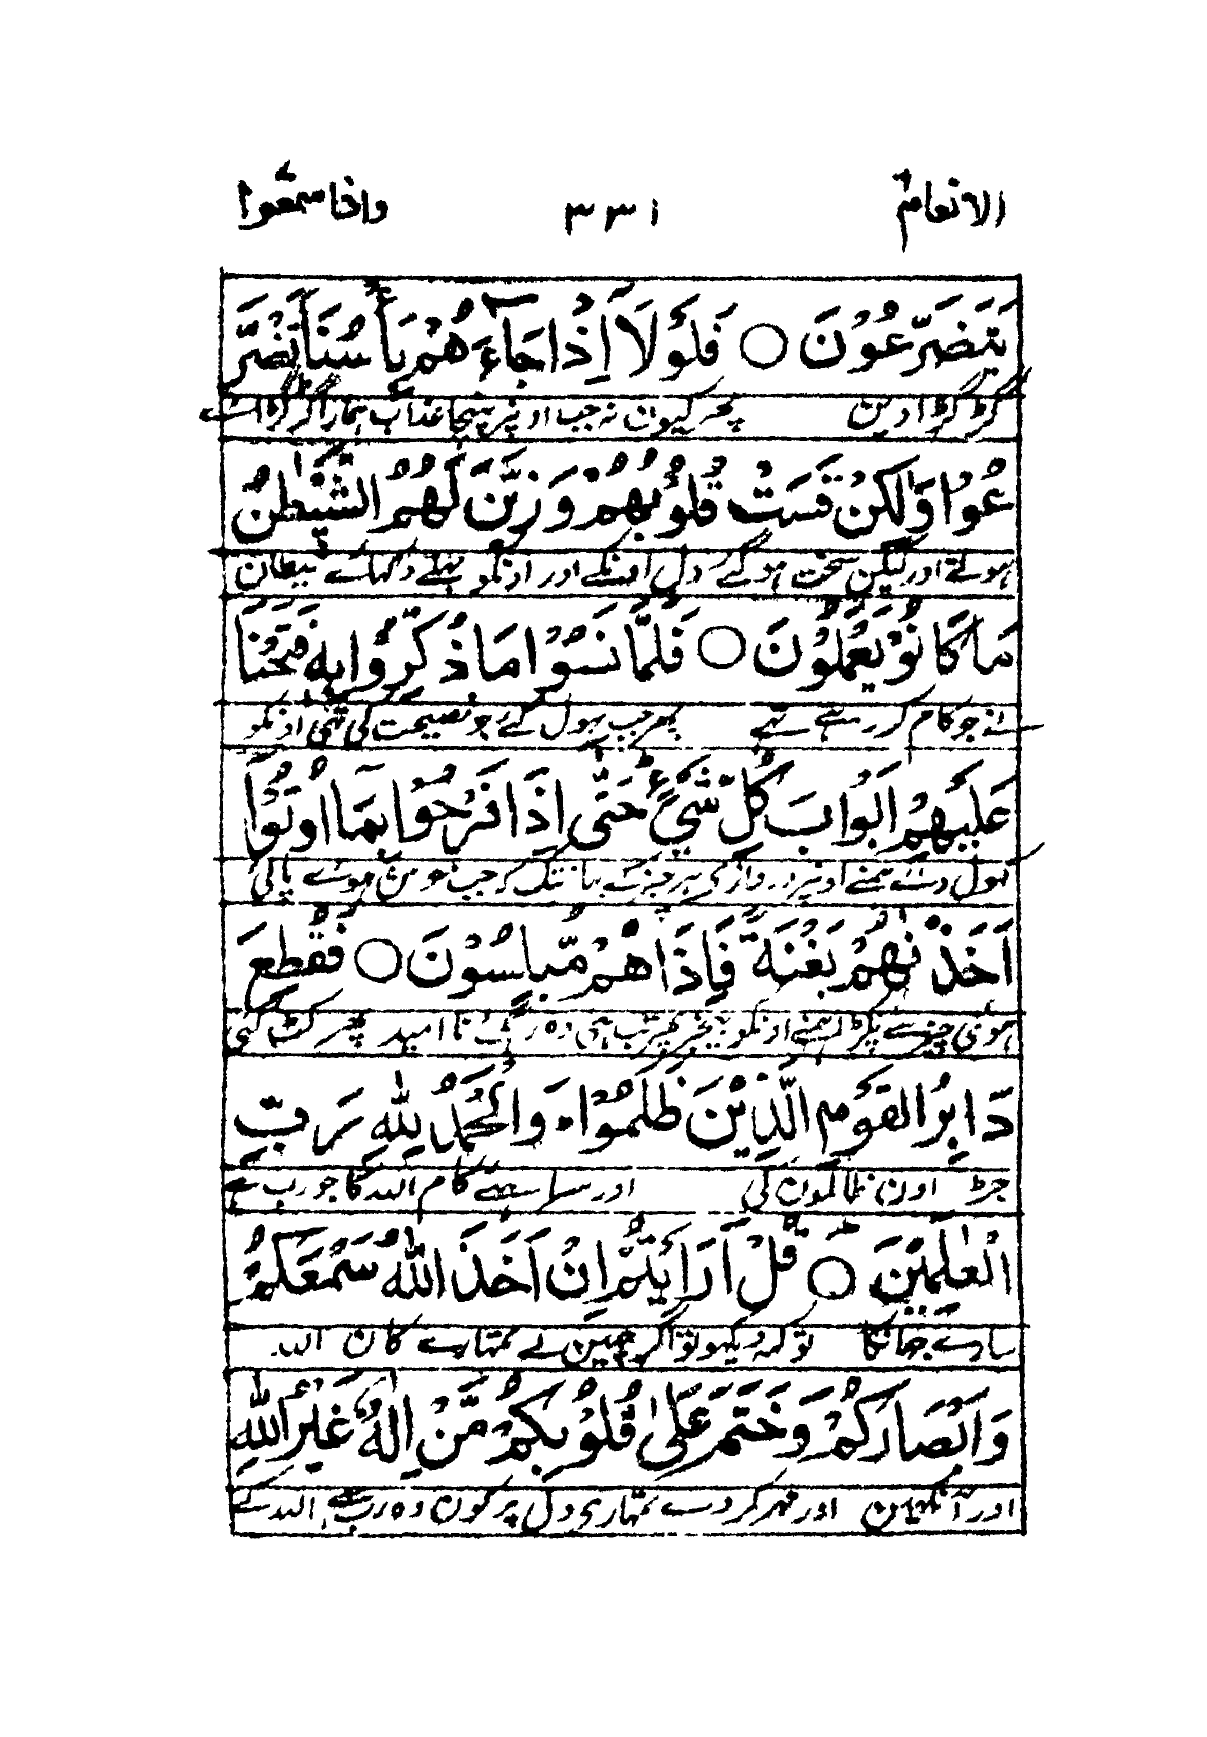 الانعام ٣٣١ واذا سمعوا
يَتَضَرَّعُوْنَ ○ فَلَوْ لَا اِذْ جَآءَهُمْ بَأْسُنَا تَضَرَّ
گڑگڑاوین پھر کیون نہ جب اونپر پہنچا عذاب ہمارا گڑگڑائے
عُوْا وَلٰكِنْ قَسَتْ قُلُوْبُهُمْ وَزَيَّنَ لَهُمُ الشَّيْطٰنُ
ہوتے اور لیکن سخت ہو گئے دل اونکے اور اونکو بھلے دکھائے شیطان
مَا كَانُوْ يَعْمَلُوْنَ ○ فَلَمَّا نَسُوْا مَا ذُكِّرُوْا بِهٖ فَتَحْنَا
نے جو کام کر رہے تھے پھر جب بھول گئے جو نصیحت کی تھی اونکو
عَلَيْهِمْ اَبْوَابَ كُلِّ شَيْءٍ حَتّٰى اِذَا فَرِحُوْا بِمَا اُوْتُوْا
کھول دئے ہمنے اونپر دروازے ہر چیز کے یہانتک کہ جب خوش ہوئے پائی
اَخَذْنٰهُمْ بَغْتَةً فَاِذَا هُمْ مُّبْلِسُوْنَ ○ فَقُطِعَ
ہوئی چیز سے پکڑا ہمنے اونکو بیخبر پھر تب ہی وہ رہ گئے نا امید پھر کٹ گئی
دَابِرُ الْقَوْمِ الَّذِيْنَ ظَلَمُوْا وَالْحَمْدُ لِلّٰهِ رَبِّ
جڑ اون ظالمون کی اور سراہے کام اللہ کا جو رب ہے
الْعٰلَمِيْنَ ○ قُلْ اَرَاَيْتُمْ اِنْ اَخَذَ اللّٰهُ سَمْعَكُمْ
سارے جہانکا تو کہہ دیکھو تو اگر چھین لے تمہارے کان اللہ
وَاَبْصَارَكُمْ وَخَتَمَ عَلٰى قُلُوْبِكُمْ مَّنْ اِلٰهٌ غَيْرُ اللّٰهِ
اور آنکھین اور مہر کر دے تمہاری دل پر کون وہ رب ہے اللہ کے